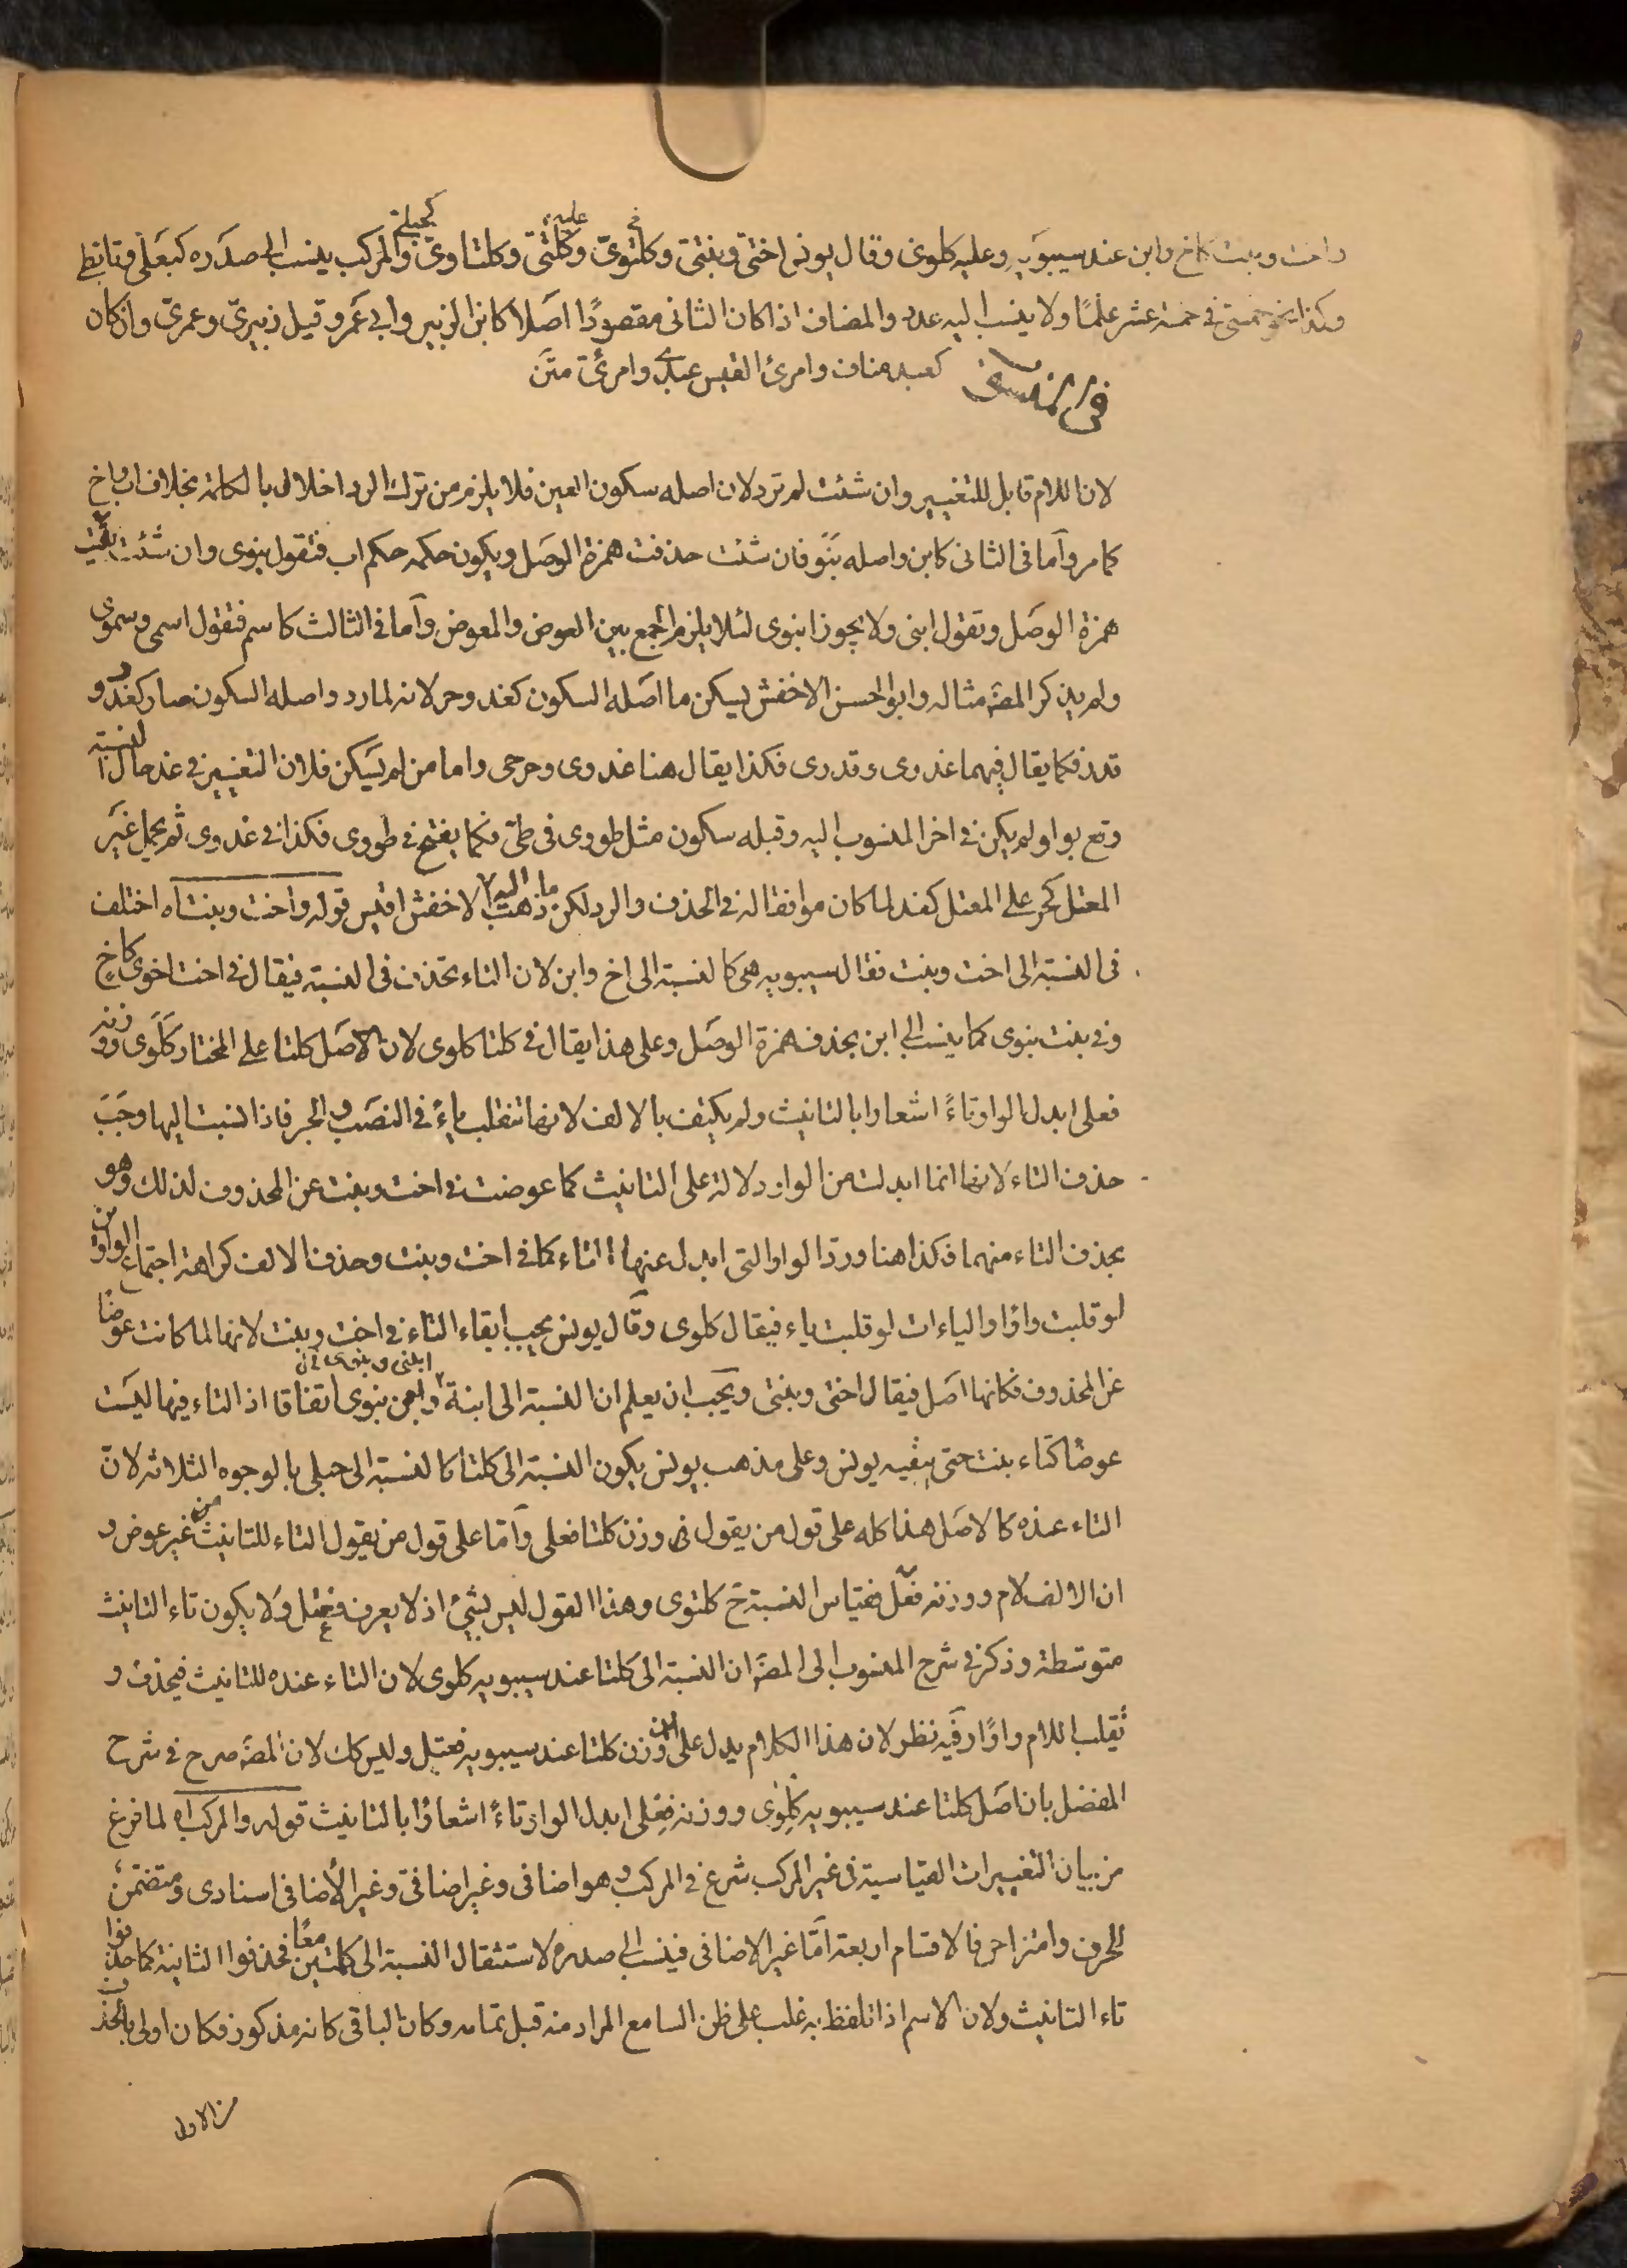 واخت وبنت كاخ وابن عند سيبويه وعليه كلوى وقال يونس اختىّ وبنتىّ وكلتوىّ وكلتىّ وكلتاوىّ والمركب ينسب الى صدره كبعلىّ وتابطىّ
وكذا نحو خمسىّ فى خمسة عشر علمًا ولا ينسب اليه عددا والمضاف اذا كان الثانى مقصودًا اصلا كابن الزبير وابى عمرو قيل زبيرىّ وعمرىّ وان كان
كعبد مناف وامرئ القيس عبدىّ وامرئىّ متن
لان اللام قابل للتغيير وان شئت لم ترد لان اصله سكون العين فلا يلزم من ترك الرد اخلال بالكلمة بخلاف اب واخ
كما مر وأما فى الثانى كابن واصله بنو فان شئت حذفت همزة الوصل ويكون حكمه حكم اب فتقول بنوى وان شئت بقيت
همزة الوصل وتقول ابنى ولا يجوز ابنوى لئلا يلزم الجمع بين العوض والمعوض وأما فى الثالث كاسم فتقول اسمى وسموى
ولم يذكر المصـ مثاله وابو الحسن الاخفش يسكن ما اصله السكون كغد وحر لانه لما رد واصله السكون صار كغدو و
قدد فكما يقال فيهما غدوى وقددى فكذا يقال هنا غدوى وحرحى واما من لم يسكن فلان التغيير فى غد حال النسبة
وقع بواو لم يكن فى اخر المنسوب اليه وقبله سكون مثل طووى فى طى فكما يفتح فى طووى فكذا فى غدوى ثم يحمل غير
المعتل كحر على المعتل كغد لما كان موافقا له فى الحذف والرد لكن ما ذهب اليه الاخفش اقيس قوله واخت وبنت اه اختلف
فى النسبة الى اخت وبنت فقال سيبويه هى كالنسبة الى اخ وابن لان التاء تحذف فى النسبة فيقال فى اخت اخوى كاخ
وفى بنت بنوى كما ينسب الى ابن بحذف همزة الوصل وعلى هذا يقال فى كلتا كلوى لان الاصل كلتا على المختار كلوى ووزنه
فعلى ابدل الواو تاءً اشعارا بالتانيث ولم يكتف بالالف لانها تنقلب ياءً فى النصب والجر فاذا نسبت اليها وجب
حذف التاء لانها انما ابدلت من الواو دلالة على التانيث كما عوضت فى اخت وبنت عن المحذوف لذلك وهو
بحذف التاء منهما فكذا هنا وردّ الواو التى ابدل عنها التاء كما فى اخت وبنت وحذف الالف كراهة اجتماع الواوين
لو قلبت واوًا والياءات لو قلبت ياء فيقال كلوى وقال يونس يجب ابقاء التاء فى اخت وبنت لانها لما كانت عوضًا
عن المحذوف فكانها اصل فيقال اختى وبنتى ويجب ان يعلم ان النسبة الى ابنة ابنى وبنوى اتفاقا اذ التاء فيها ليست
عوضًا كتاء بنت حتى يبقيه يونس وعلى مذهب يونس يكون النسبة الى كلتا كالنسبة الى حبلى بالوجوه الثلاثة لانّ
التاء عنده كالاصل هذا كله على قول من يقول فى وزن كلتا فعلى وأمّا على قول من يقول التاء للتانيث من غير عوض و
ان الالف لام ووزنه فعتل فقياس النسبة ح كلتوى وهذا القول ليس بشئ اذ لا يعرف فعتل ولا يكون تاء التانيث
متوسطة وذكر فى شرح المنسوب الى المصـ ان النسبة الى كلتا عند سيبويه كلوى لان التاء عنده للتانيث فيحذف و
تقلب اللام واوًا وفيه نظر لان هذا الكلام يدل على ان وزن كلتا عند سيبويه فعتل وليس كك لان المصـ صرح فى شرح
المفصل بان اصل كلتا عند سيبويه كلوى ووزنه فعلى ابدل الواو تاءً اشعارًا بالتانيث قوله والمركب اه لما فرغ
من بيان التغييرات القياسية فى غير المركب شرع فى المركب وهو اضافى وغير اضافى وغير الاضافى اسنادى ومتضمن
للحرف وامتزاجى فالاقسام اربعة أمّا غير الاضافى فينسب الى صدره لاستثقال النسبة الى كلمتين معًا فحذفوا الثانية كما حذفوا
تاء التانيث ولان الاسم اذا تلفظ به غلب على ظن السامع المراد منه قبل تمامه وكان الباقى كانه مذكور فكان اولى بالحذف
من الاول